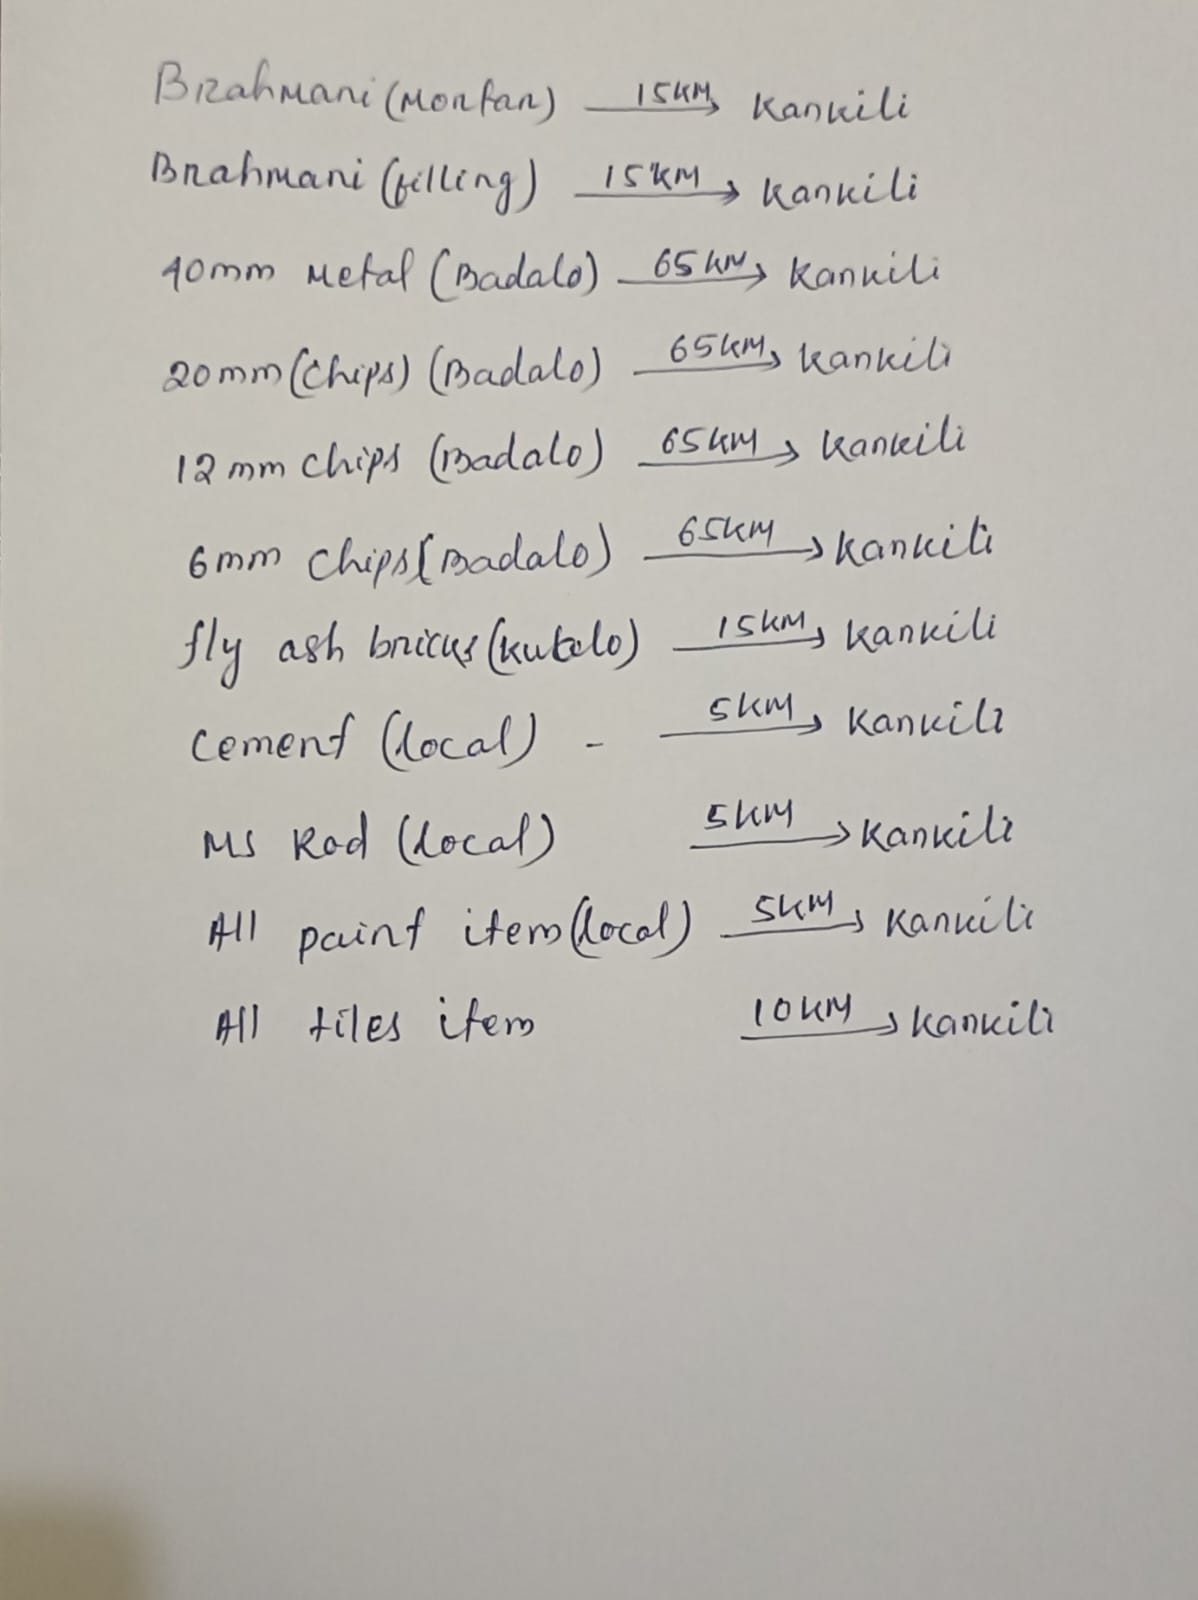 Brahmani (Mortar) 15KM → Kankili
Brahmani (filling) 15KM → Kankili
40mm Metal (Badalo) 65KM → Kankili
20mm (Chips) (Badalo) 65KM → Kankili
12mm Chips (Badalo) 65KM → Kankili
6mm Chips (Badalo) 65KM → Kankili
fly ash bricks (kutelo) 15KM → Kankili
Cement (local) - 5KM → Kankili
MS Rod (local) 5KM → Kankili
All paint item (local) 5KM → Kankili
All tiles item 10KM → Kankili